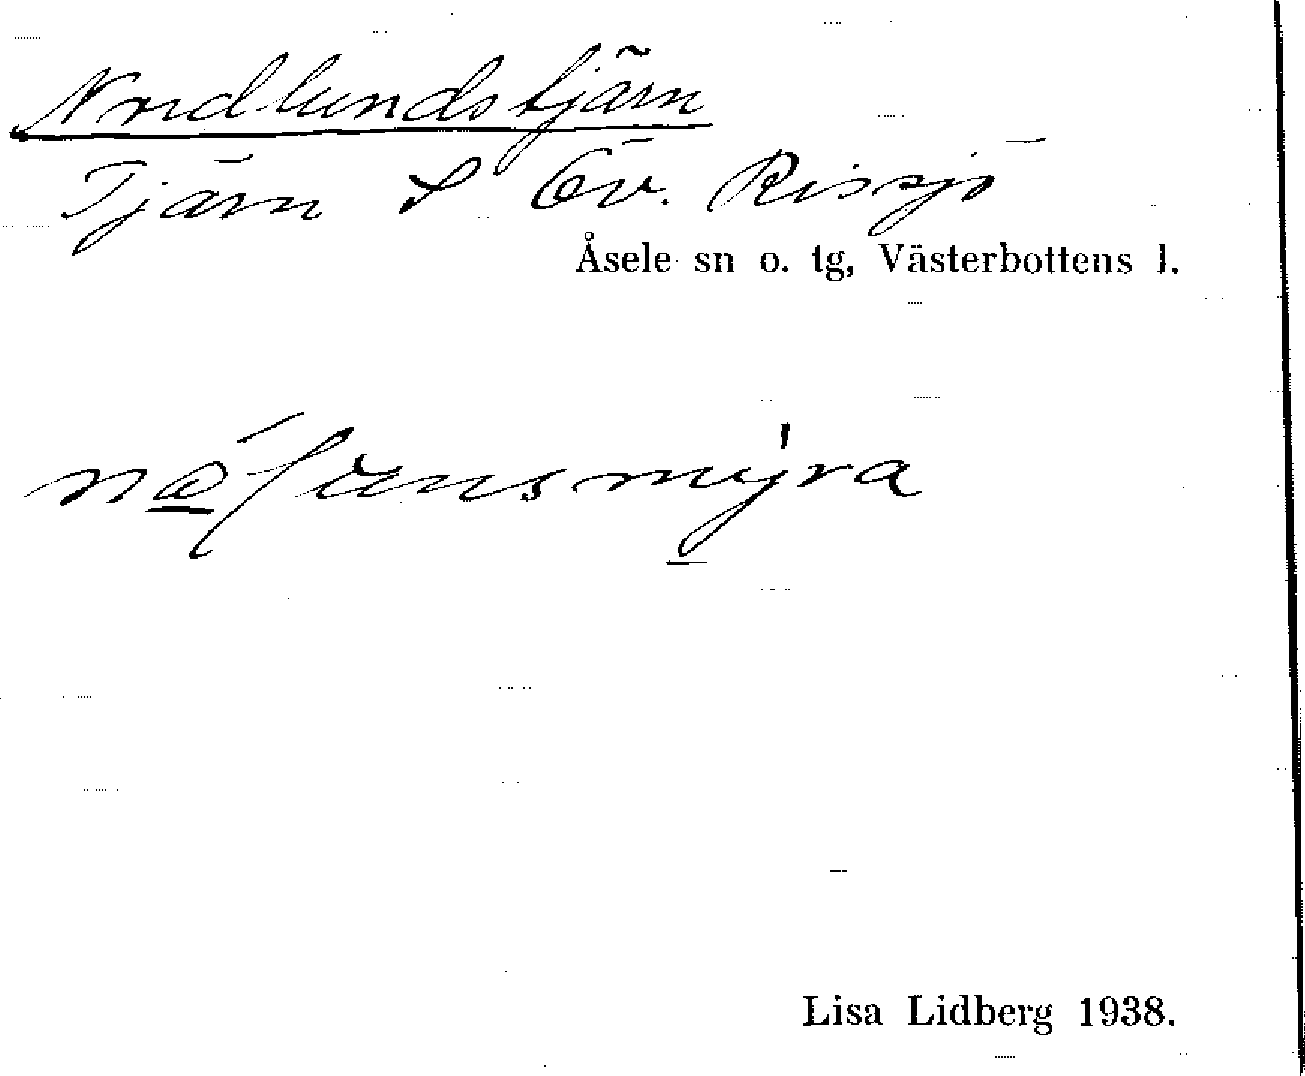 Nordlundstjärn
Tjärn S Öv. Rissjö
Åsele sn o. tg, Västerbottens l.
Lisa Lidberg 1938.